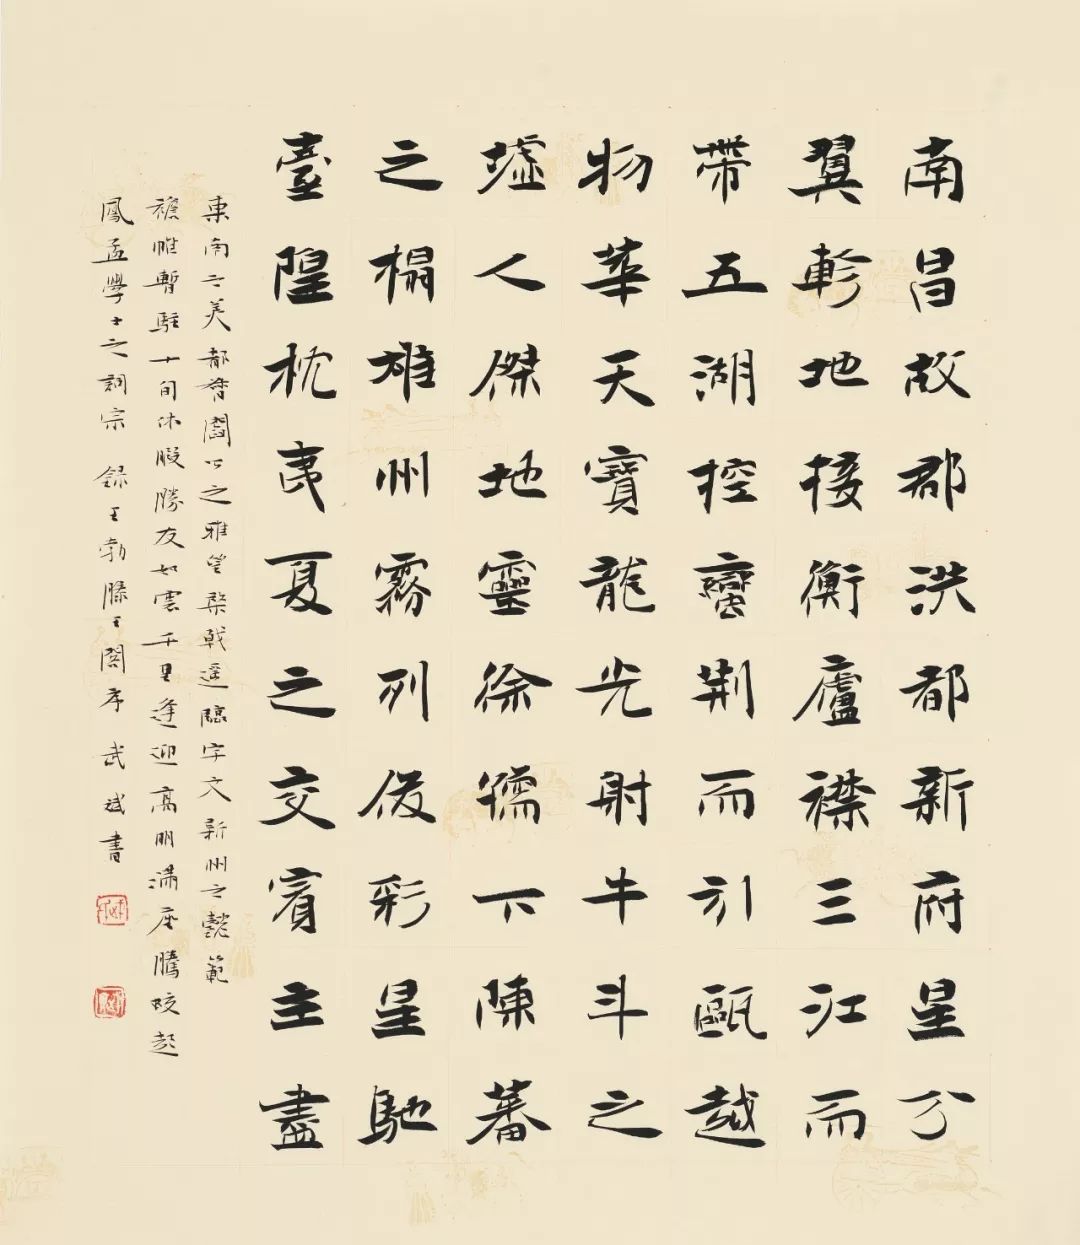 南昌故郡洪都新府星分
翼軫地接衡廬襟三江而
帶五湖控蠻荆而引甌越
物華天寶龍光射牛斗之
墟人傑地靈徐孺下陳蕃
之榻雄州霧列俊彩星馳
臺隍枕夷夏之交賓主盡
東南之美都督閻公之雅望棨戟遥臨宇文新州之懿範
襜帷暫駐十旬休假勝友如雲千里逢迎高朋滿座騰蛟起
鳳孟學士之詞宗 録王勃滕王閣序 武斌書